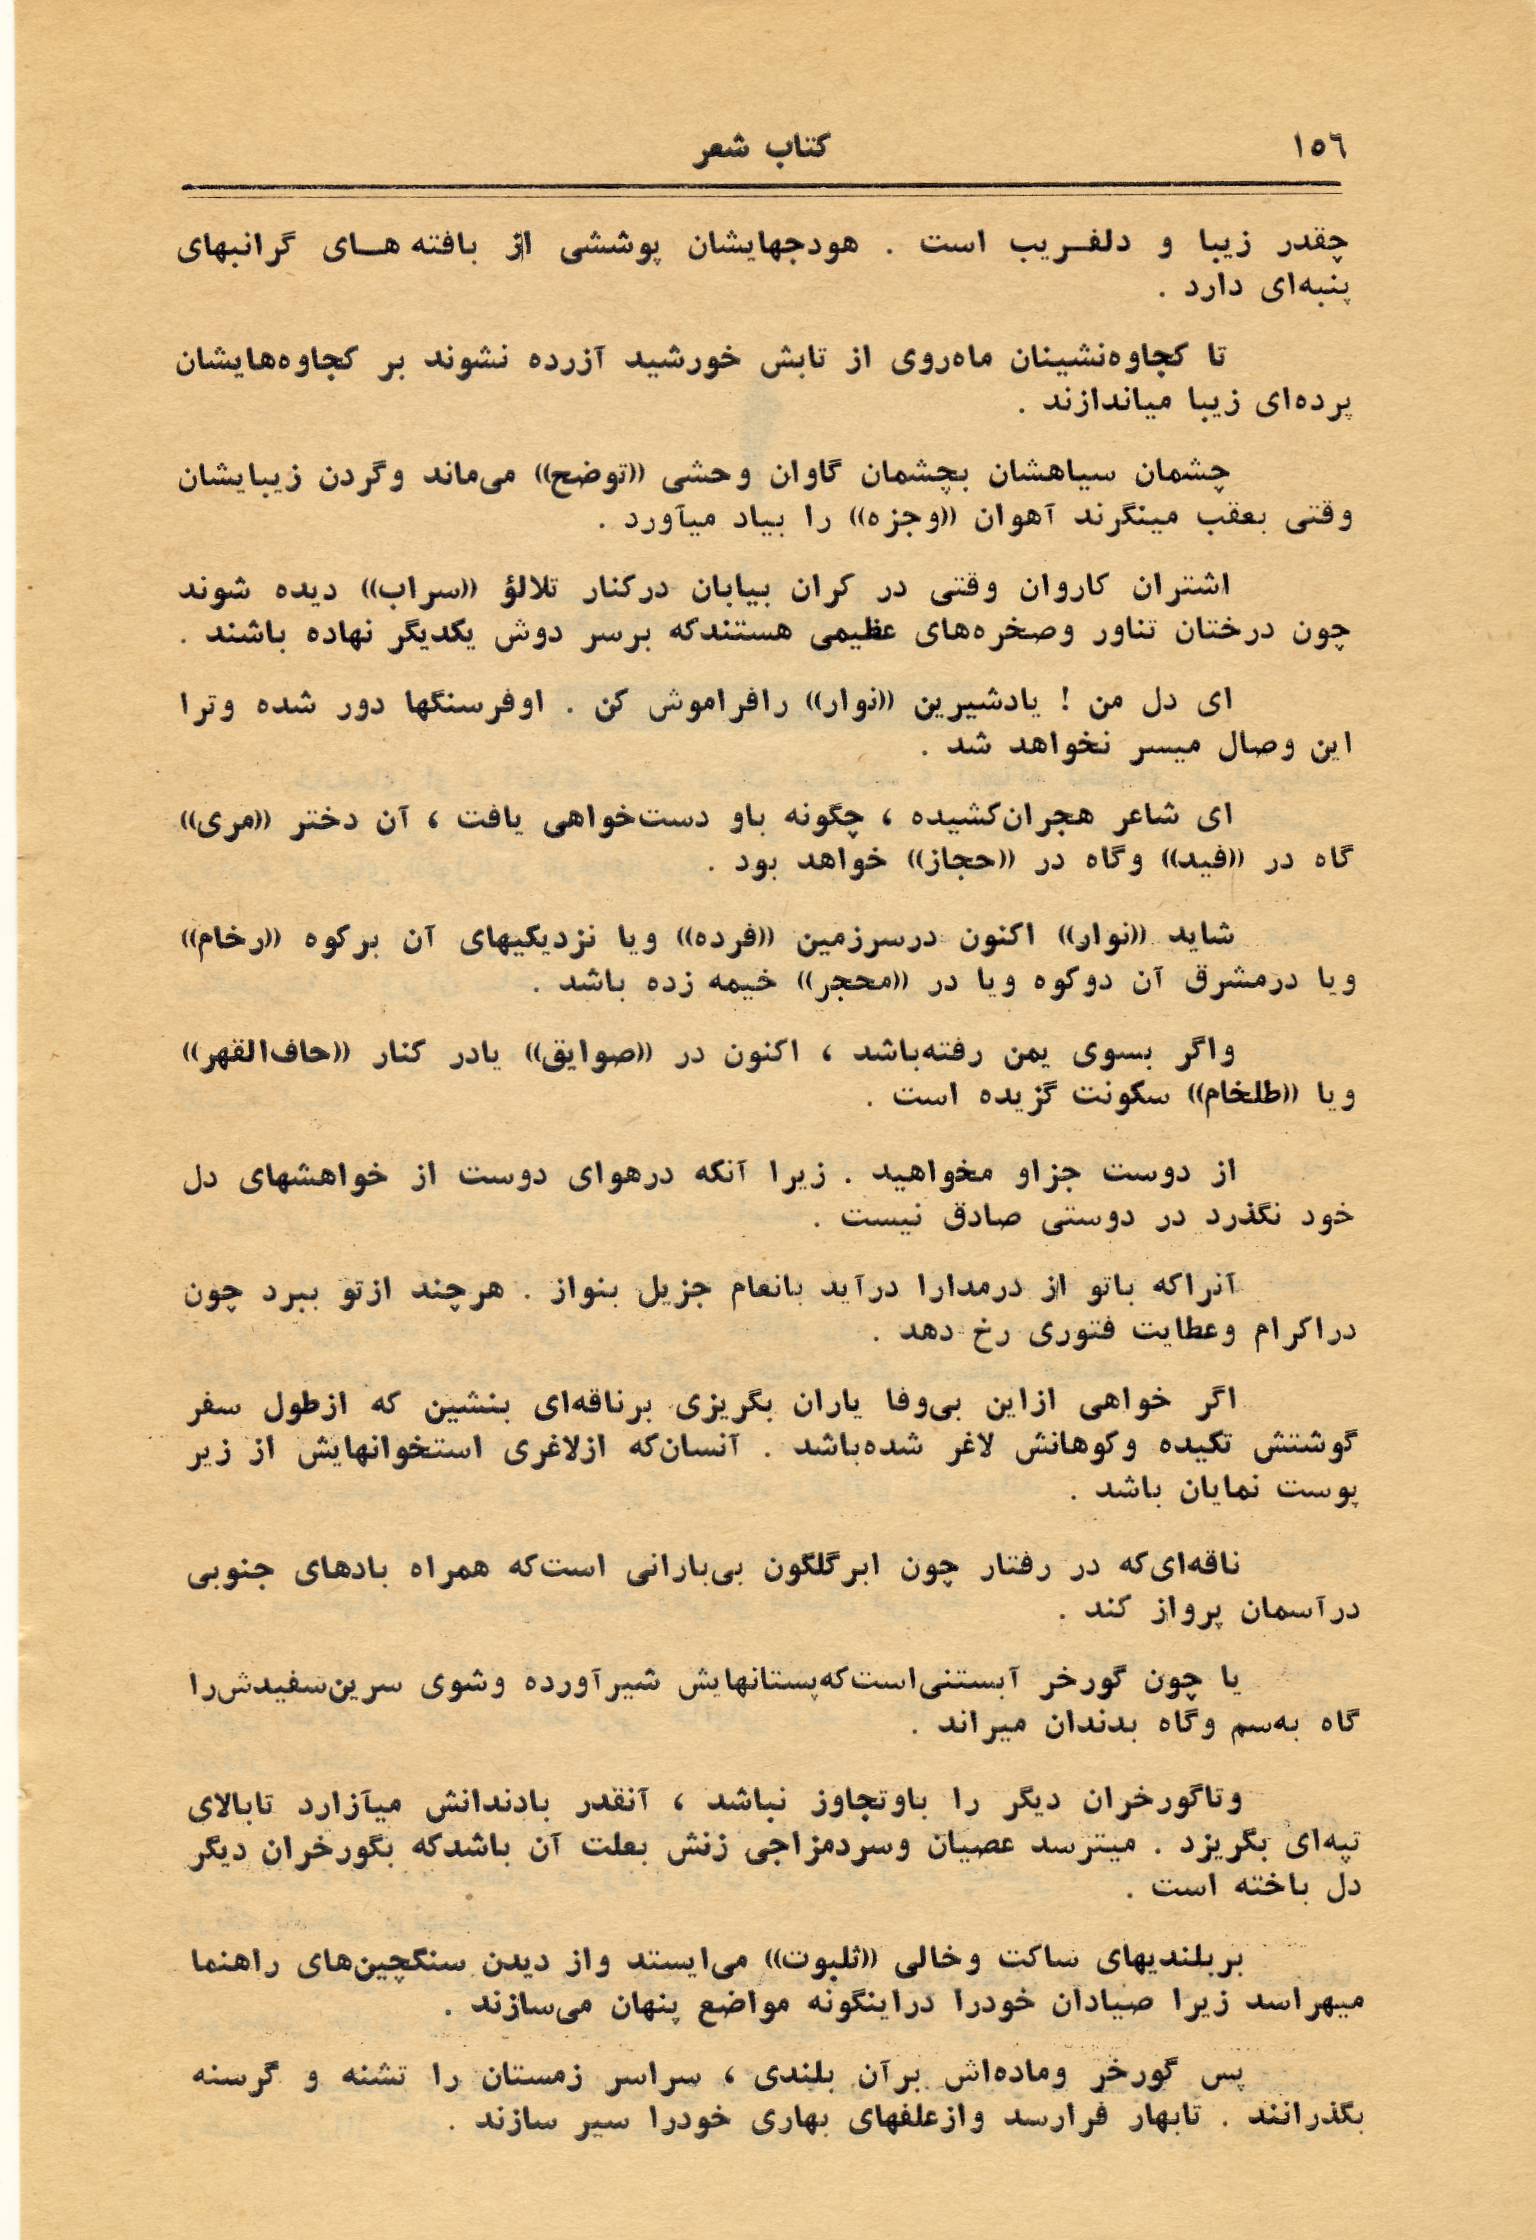 ۱۵٦
کتاب شعر
چقدر زیبا و دلفــریب است . هودجهایشان پوششی از بافته هــای گرانبهای
پنبه‌ای دارد .
تا کجاوه‌نشینان ماه‌روی از تابش خورشید آزرده نشوند بر کجاوه‌هایشان
پرده‌ای زیبا میاندازند .
چشمان سیاهشان بچشمان گاوان وحشی ((توضح)) می‌ماند وگردن زیبایشان
وقتی بعقب مینگرند آهوان ((وجزه)) را بیاد میآورد .
اشتران کاروان وقتی در کران بیابان درکنار تلالؤ ((سراب)) دیده شوند
چون درختان تناور وصخره‌های عظیمی هستندکه برسر دوش یکدیگر نهاده باشند .
ای دل من ! یادشیرین ((نوار)) رافراموش کن . اوفرسنگها دور شده وترا
این وصال میسر نخواهد شد .
ای شاعر هجران‌کشیده ، چگونه باو دست‌خواهی یافت ، آن دختر ((مری))
گاه در ((فید)) وگاه در ((حجاز)) خواهد بود .
شاید ((نوار)) اکنون درسرزمین ((فرده)) ویا نزدیکیهای آن برکوه ((رخام))
ویا درمشرق آن دوکوه ویا در ((محجر)) خیمه زده باشد .
واگر بسوی یمن رفته‌باشد ، اکنون در ((صوایق)) یادر کنار ((حاف‌القهر))
ویا ((طلخام)) سکونت گزیده است .
از دوست جزاو مخواهید . زیرا آنکه درهوای دوست از خواهشهای دل
خود نگذرد در دوستی صادق نیست .
آنراکه باتو از درمدارا درآید بانعام جزیل بنواز . هرچند ازتو ببرد چون
دراکرام وعطایت فتوری رخ دهد .
اگر خواهی ازاین بی‌وفا یاران بگریزی برناقه‌ای بنشین که ازطول سفر
گوشتش تکیده وکوهانش لاغر شده‌باشد . آنسان‌که ازلاغری استخوانهایش از زیر
پوست نمایان باشد .
ناقه‌ای‌که در رفتار چون ابرگلگون بی‌بارانی است‌که همراه بادهای جنوبی
درآسمان پرواز کند .
یا چون گورخر آبستنی‌است‌که‌پستانهایش شیرآورده وشوی سرین‌سفیدش‌را
گاه به‌سم وگاه بدندان میراند .
وتاگورخران دیگر را باوتجاوز نباشد ، آنقدر بادندانش میآزارد تابالای
تپه‌ای بگریزد . میترسد عصیان وسردمزاجی زنش بعلت آن باشدکه بگورخران دیگر
دل باخته است .
بربلندیهای ساکت وخالی ((ثلبوت)) می‌ایستد واز دیدن سنگچین‌های راهنما
میهراسد زیرا صیادان خودرا دراینگونه مواضع پنهان می‌سازند .
پس گورخر وماده‌اش برآن بلندی ، سراسر زمستان را تشنه و گرسنه
بگذرانند . تابهار فرارسد وازعلفهای بهاری خودرا سیر سازند .